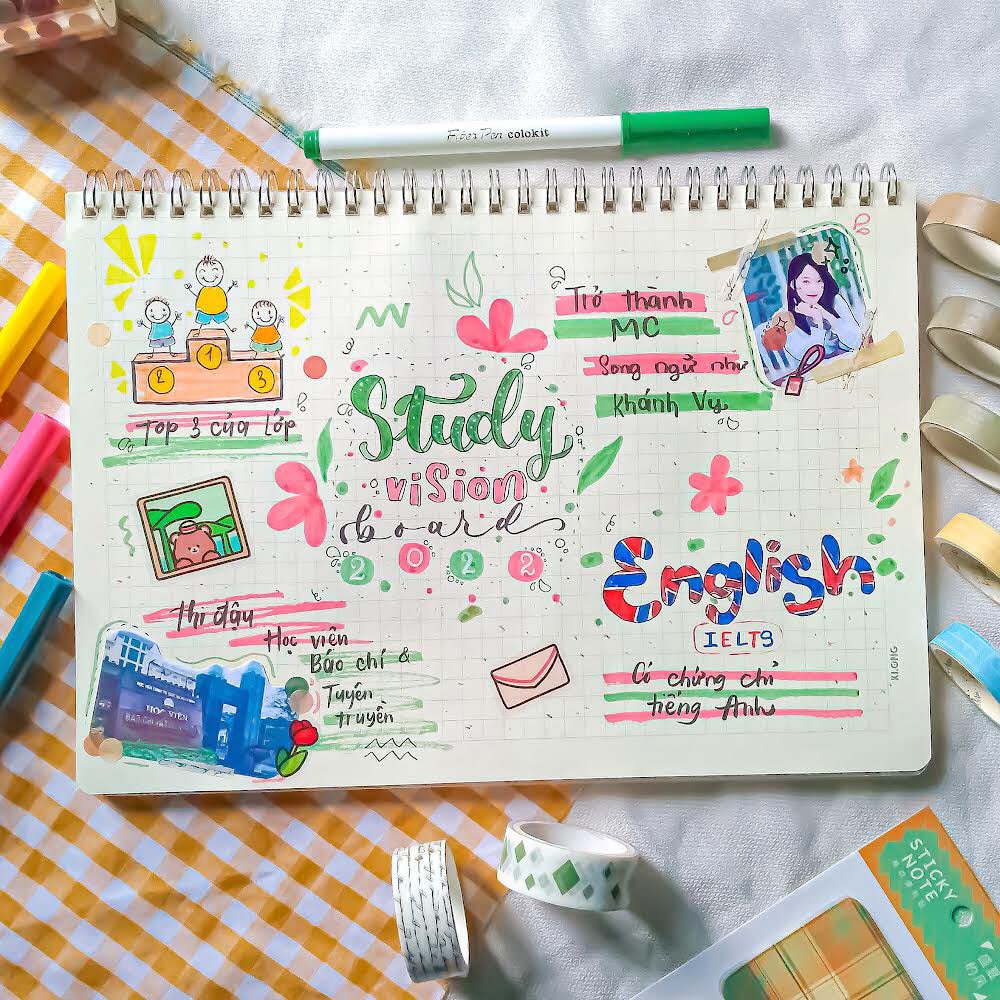 Fiber Pen colokit
1
2
3
Top 3 của lớp
Trở thành
MC
Song ngữ như
Khánh Vy
Study
vision
board
2022
English
IELTS
Có chứng chỉ
tiếng Anh
thi đậu
Học viện
Báo chí &
Tuyên
truyền
HỌC VIỆN
KLONG
STICKY
NOTE